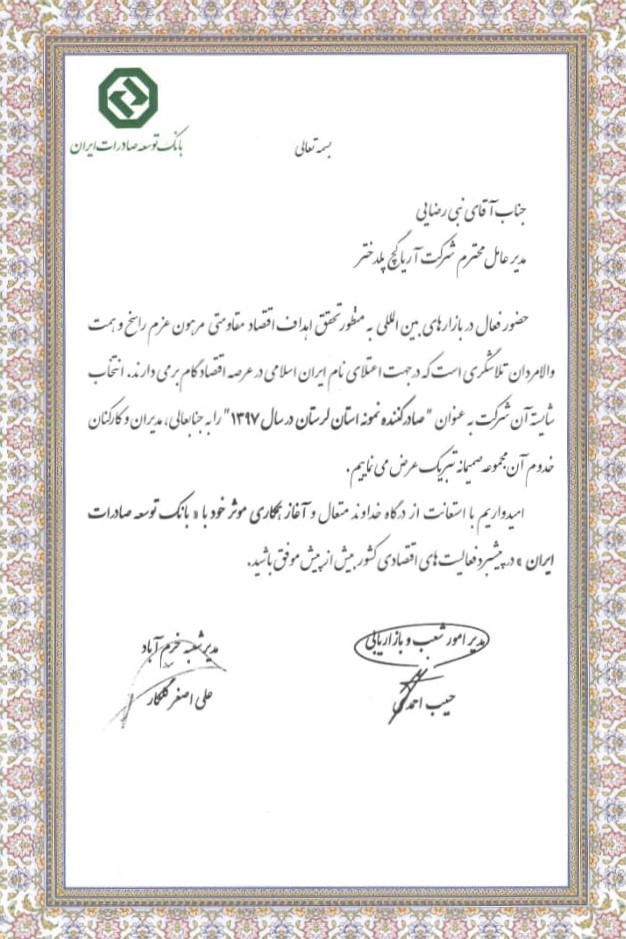 بانک توسعه صادرات ایران
بسمه تعالی
جناب آقای نبی رضایی
مدیر عامل محترم شرکت آریا گچ پلدختر
حضور فعال در بازارهای بین المللی به منظور تحقق اهداف اقتصاد مقاومتی مرهون عزم راسخ و همت
والامردان تلاشگری است که در جهت اعتلای نام ایران اسلامی در عرصه اقتصاد گام برمی دارند. انتخاب
شایسته آن شرکت به عنوان "صادرکننده نمونه استان لرستان در سال ۱۳۹۷" را به جنابعالی، مدیران و کارکنان
خدوم آن مجموعه صمیمانه تبریک عرض می نماییم.
امیدواریم با استعانت از درگاه خداوند متعال و آغاز همکاری موثر خود با « بانک توسعه صادرات
ایران » در پیشبرد فعالیت های اقتصادی کشور بیش از پیش موفق باشید.
مدیر امور شعب و بازاریابی
حبیب احمدی
مدیر شعبه خرم آباد
علی اصغر گلکار